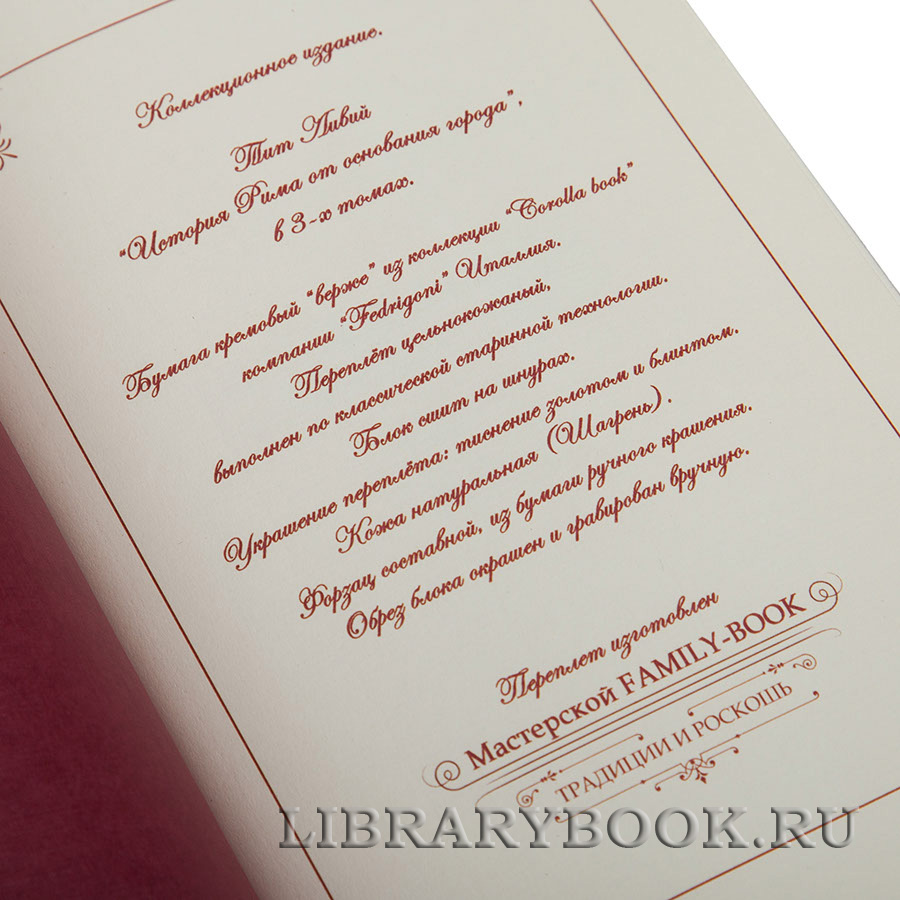 Коллекционное издание.
Тит Ливий
“История Рима от основания города”,
в 3-х томах.
Бумага кремовый “верже” из коллекции “Corolla book”
компании “Fedrigoni” Италлия.
Переплёт цельнокожаный,
выполнен по классической старинной технологии.
Блок сшит на шнурах.
Украшение переплёта: тиснение золотом и блинтом.
Кожа натуральная (Шагрень).
Форзац составной, из бумаги ручного крашения.
Обрез блока окрашен и гравирован вручную.
Переплет изготовлен
Мастерской FAMILY-BOOK
ТРАДИЦИИ И РОСКОШЬ
LIBRARYBOOK.RU